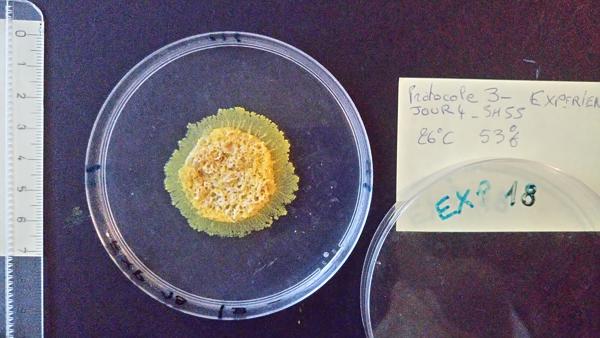 0
1
2
3
4
5
6
7
Protocole 3- EXPERIEN
JOUR 4 - 5H55
26°C 53%
EXP 18